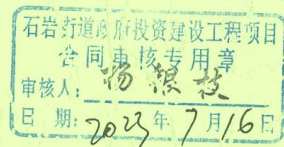 石岩街道政府投资建设工程项目
合同审核专用章
审核人：杨
日 期：2023年7月16日